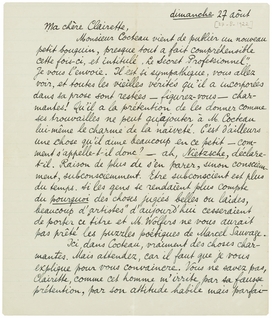 dimanche 27 août
Ma chère Clairette,
Monsieur Cocteau vient de publier un nouveau
petit bouquin, presque tout à fait compréhensible
cette fois-ci, et intitulé "Le Secret Professionnel".
Je vous l'envoie. Il est si sympathique, vous allez
voir, et toutes les vieilles vérités qu'il a incorporées
dans sa prose sont restées — figurez-vous — char-
mantes! Qu'il a la prétention de les donner comme
ses trouvailles ne peut qu'ajouter à M. Cocteau
lui-même le charme de la naïveté. C'est d'ailleurs
une chose qu'il aime beaucoup en ce petit — com-
ment s'appelle-t-il donc? — ah, Nietzsche, déclare-
t-il. Raison de plus de s'en parer, sinon consciem-
ment, subconsciemment. Etre subconscient est plus
du temps. Si les gens se rendaient plus compte
du pourquoi des choses jugées belles ou laides,
beaucoup d'artistes d'aujourd'hui cesseraient
de porter ce titre et M. Wolfers ne vous aurait
pas prêté les puzzles poétiques de Marcel Sauvage.
Ici, dans Cocteau, vraiment des choses char-
mantes. Mais attendez, car il faut que je vous
explique pour vous convaincre. Vous ne savez pas,
Clairette, comme cet homme m'irrite par sa fausse
prétention, par son attitude habile mais parfai-